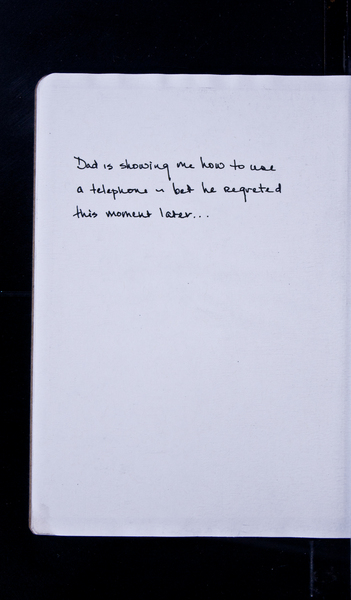 Dad is showing me how to use
a telephone ~ bet he regreted
this moment later...